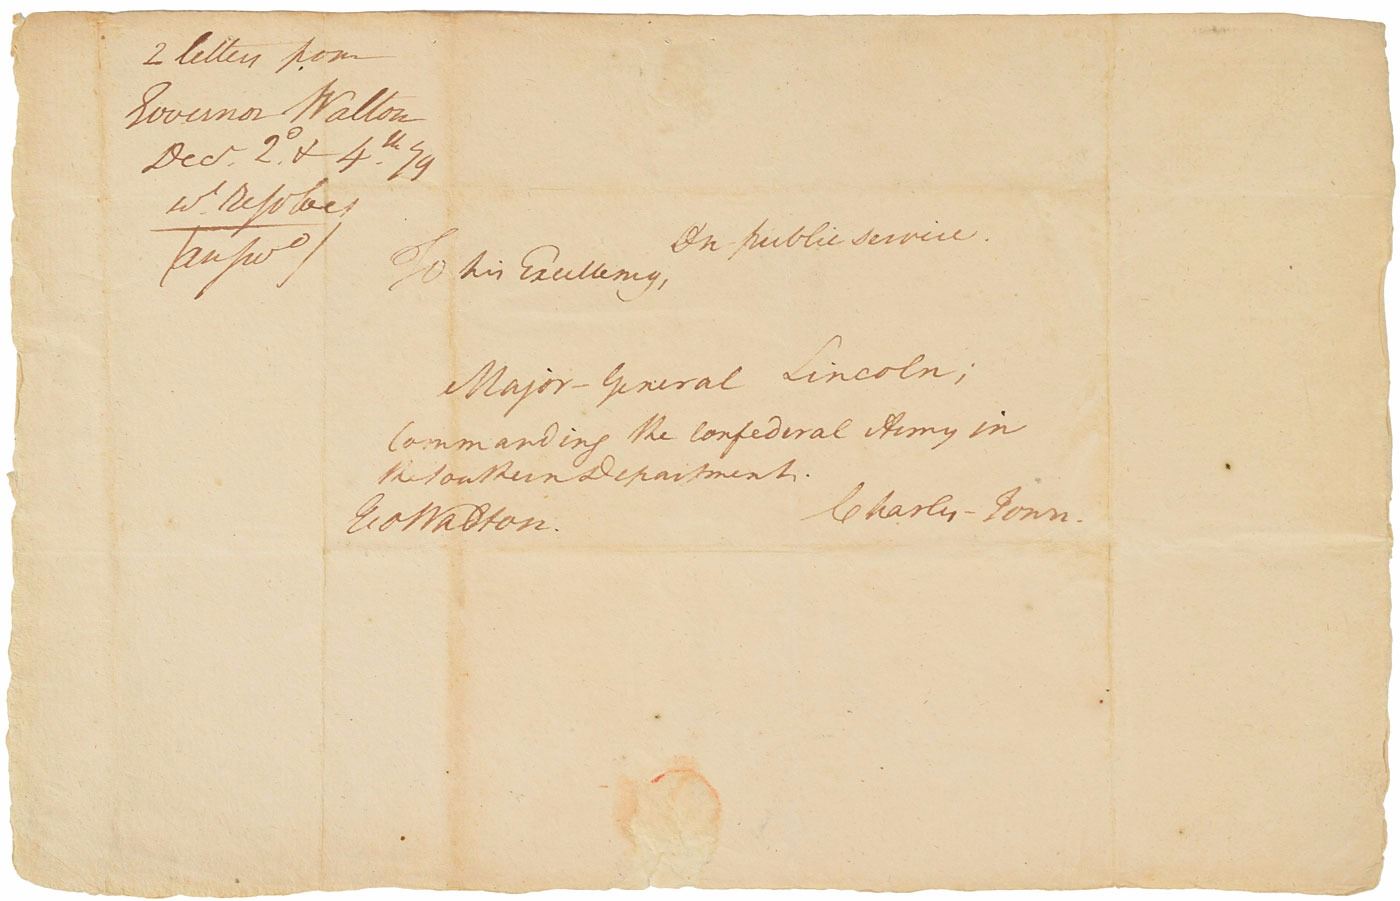 2 letters from
Governor Walton
Decr. 2d. & 4th. 79
wt. Resolves
(answd)
On public service.
To his Excellency,
Major-General Lincoln;
Commanding the Confederal Army in
the Southern Department.
Geo Walton.
Charles-Town.